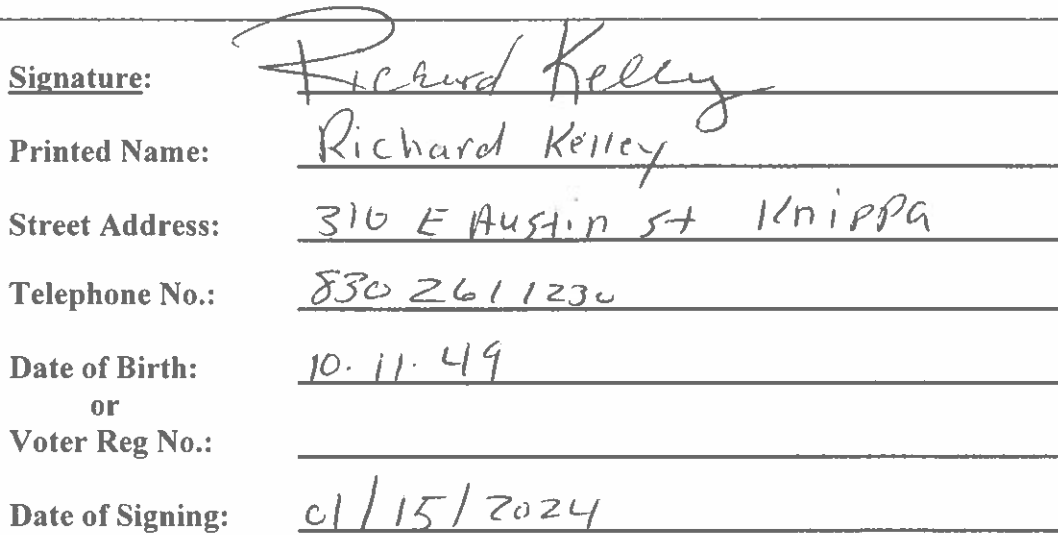 Signature: Richard Kelley
Printed Name: Richard Kelley
Street Address: 310 E Austin st Knippa
Telephone No.: 830 261 1230
Date of Birth: 10.11.49
or
Voter Reg No.:
Date of Signing: 01/15/2024